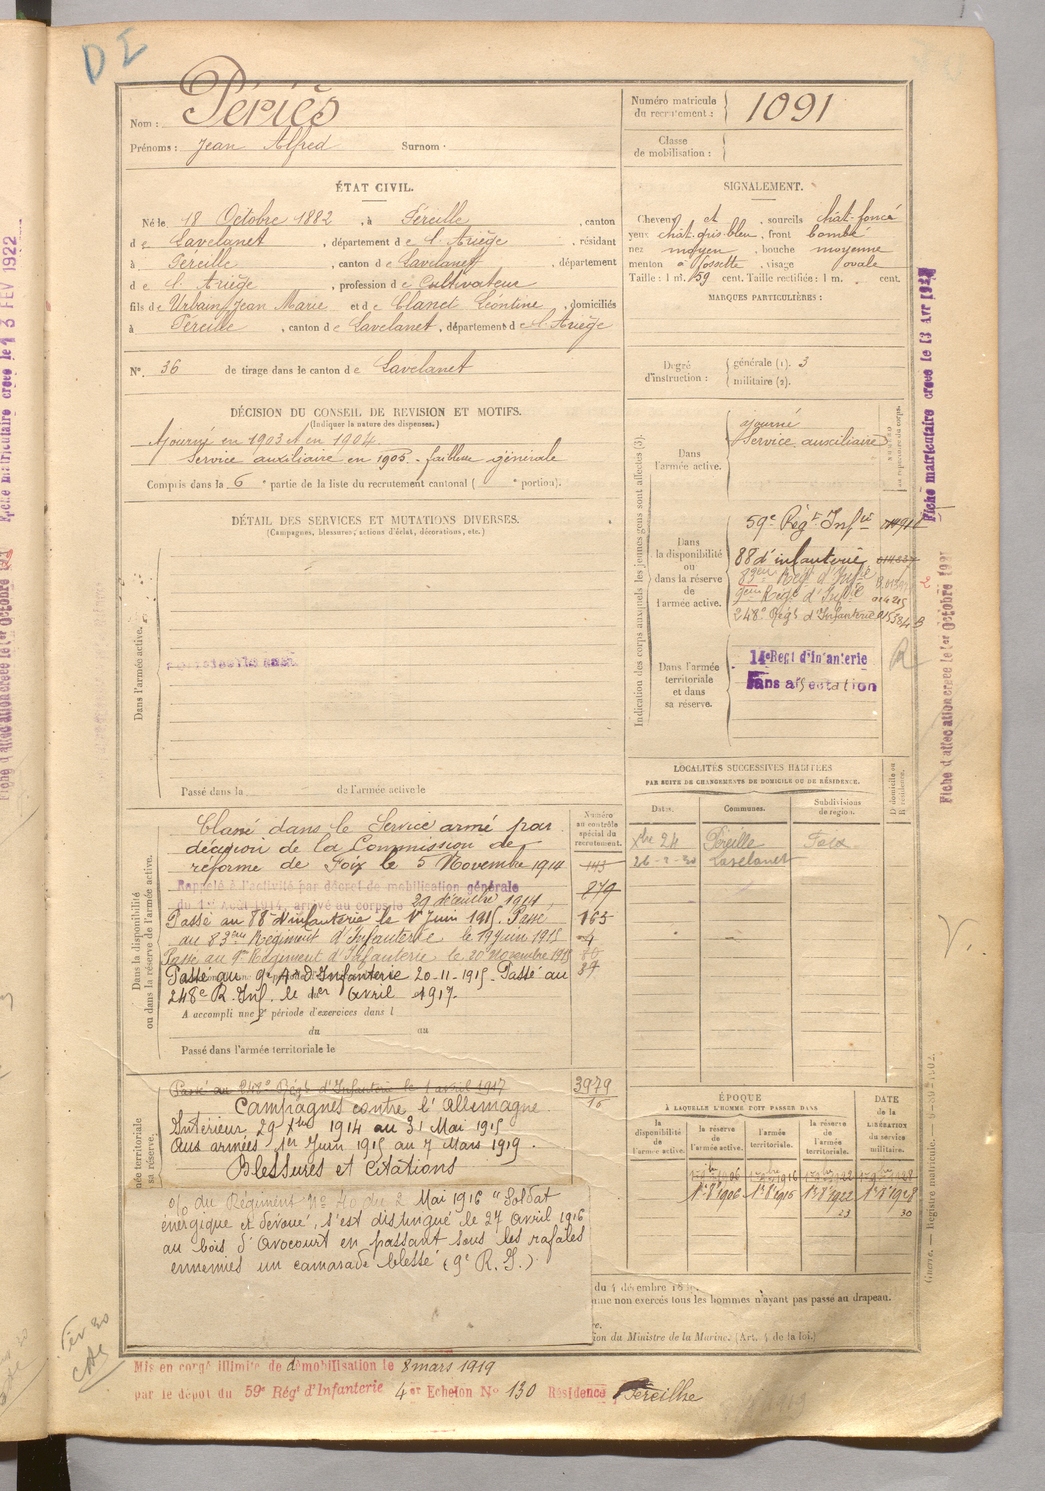 DI
Nom : Périès
Prénoms : Jean Alfred Surnom :
Numéro matricule du recrutement : 1091
Classe de mobilisation :
ÉTAT CIVIL.
Né le 18 Octobre 1882, à Péreille, canton
de Lavelanet, département de l'Ariège, résidant
à Péreille, canton de Lavelanet, département
de l'Ariège, profession de Cultivateur
fils de Urbain, Jean Marie et de Clanet Léontine, domiciliés
à Péreille, canton de Lavelanet, département de l'Ariège
N° 36 de tirage dans le canton de Lavelanet
SIGNALEMENT.
Cheveux et, sourcils chât-foncé
yeux chât. gris-bleu, front bombé
nez moyen, bouche moyenne
menton à fossette, visage ovale
Taille : 1 m. 59 cent. Taille rectifiée : 1 m. cent.
MARQUES PARTICULIÈRES :
Degré d'instruction : générale (1). 3
militaire (2).
DÉCISION DU CONSEIL DE REVISION ET MOTIFS.
(Indiquer la nature des dispenses.)
Ajourné en 1903 et en 1904.
Service auxiliaire en 1905. faiblesse générale
Compris dans la 6e partie de la liste du recrutement cantonal ( e portion).
DÉTAIL DES SERVICES ET MUTATIONS DIVERSES.
(Campagnes, blessures, actions d'éclat, décorations, etc.)
Dans l'armée active.
Passé dans la de l'armée active le
Indication des corps auxquels les jeunes gens sont affectés (3).
Dans l'armée active.
ajourné
Service auxiliaire
Dans la disponibilité ou dans la réserve de l'armée active.
59e Régt Infie
88 d'infanterie
83em Régt d'Infie
9em Régt d'Infie
248e Régt d'Infanterie
Dans l'armée territoriale et dans sa réserve.
14e Regt d'Infanterie
Sans affectation
LOCALITÉS SUCCESSIVES HABITÉES
PAR SUITE DE CHANGEMENTS DE DOMICILE OU DE RÉSIDENCE.
Dates. Communes. Subdivisions de région. D domicile ou R résidence.
Xbre 24 Péreille Foix
26-2-30 Lavelanet
Dans la disponibilité ou dans la réserve de l'armée active.
Numéro au contrôle spécial du recrutement.
Classé dans le Service armé par
décision de la Commission de
réforme de Foix le 5 Novembre 1914
Rappelé à l'activité par décret de mobilisation générale
du 1er Août 1914, arrivé au corps le 29 décembre 1914
Passé au 88e d'infanterie le 1er Juin 1915. Passé
au 83em Régiment d'Infanterie le 19 juin 1915
Passé au 9e Régiment d'Infanterie le 20 Novembre 1915
Passé au 9e R d'Infanterie 20-11-1915. Passé au
248e R. Inf. le 1er Avril 1917.
879
165
37
A accompli une période d'exercices dans l
du au
Passé dans l'armée territoriale le
Passé au 248e Régt d'Infanterie le 1 avril 1917
3979
16
Campagnes contre l'Allemagne
Intérieur 29 Xbre 1914 au 31 Mai 1915
Aus armées 1er Juin 1915 au 7 Mars 1919.
Blessures et Citations
O/ du Régiment N° 40 du 2 Mai 1916 "Soldat
énergique et dévoué, s'est distingué le 27 Avril 1916
au bois d'Avocourt en passant sous les rafales
ennemies un camarade blessé (9e R. I.)
ÉPOQUE
À LAQUELLE L'HOMME DOIT PASSER DANS
la disponibilité de l'armée active. la réserve de l'armée active. l'armée territoriale. la réserve de l'armée territoriale.
DATE de la LIBÉRATION du service militaire.
1er 8bre 1906 1er 8bre 1916 1er 8bre 1922 1er 8bre 1928
23 30
du 4 décembre 18
non exercés tous les hommes n'ayant pas passé au drapeau.
du Ministre de la Marine. (Art. 4 de la loi.)
Mis en congé illimité de démobilisation le 8 mars 1919
par le dépôt du 59e Rég' d'Infanterie 4er Echelon N° 130 Résidence Péreilhe
Fiche matriculaire créée le 13 Avr
Fiche d'affectation créée le 1er Octobre
Guerre. — Registre matricule.
Fev 30
Fiche matriculaire créée le 13 FEV 1922
Fiche d'affectation créée le 1er Octobre